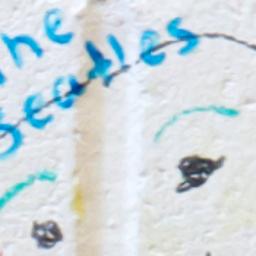 The
Beatles